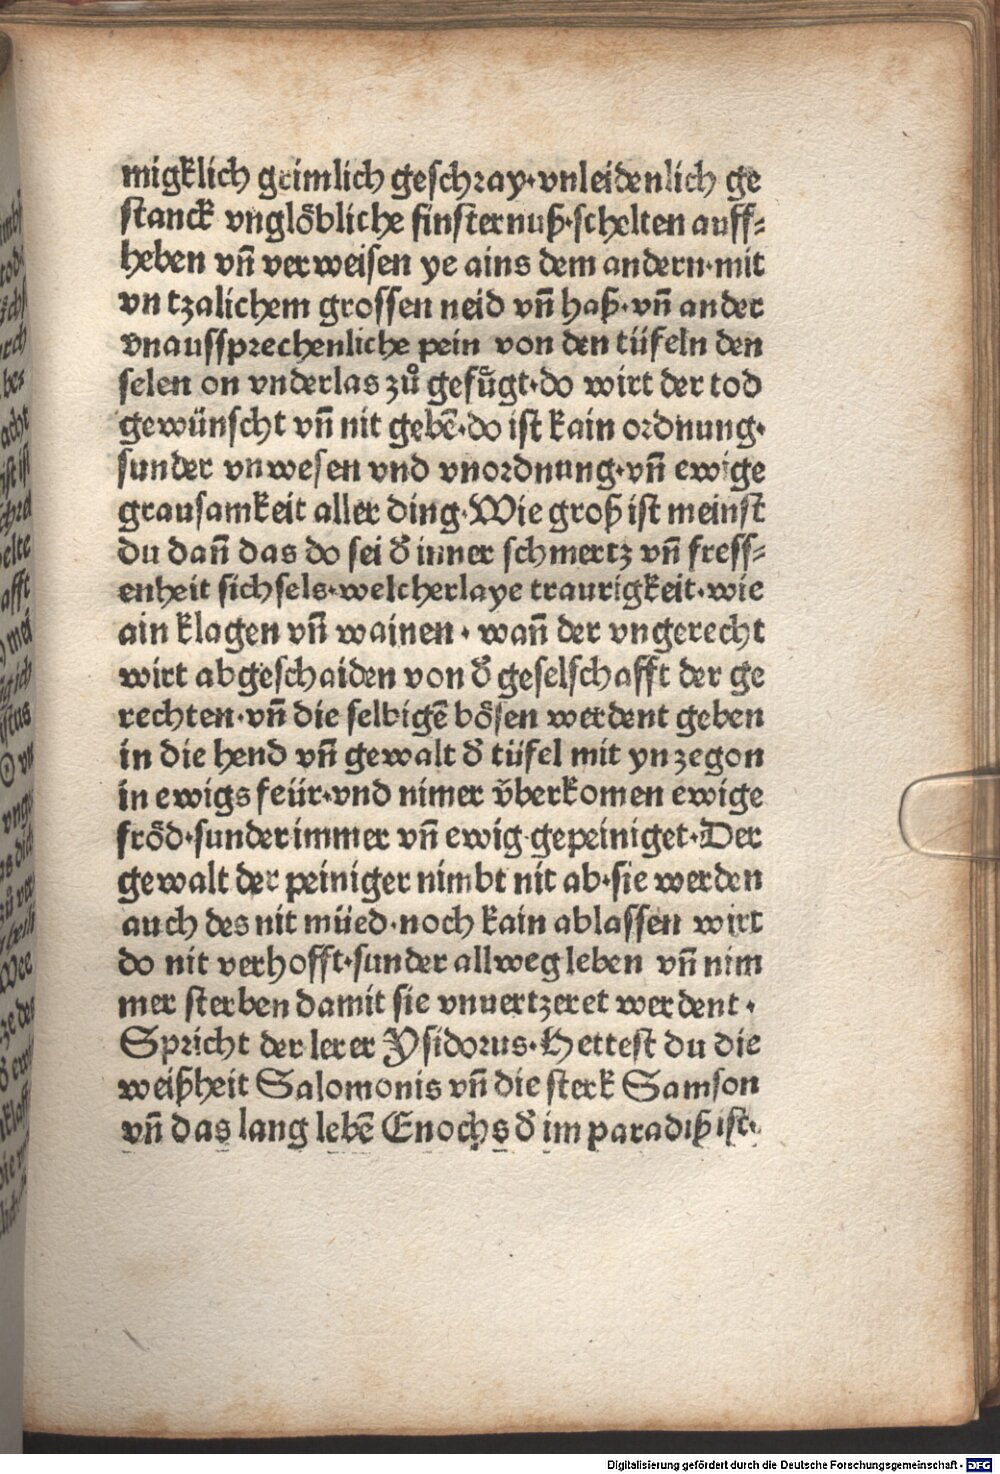 migklich grimlich geschray·vnleidenlich ge
stanck vnglöbliche finsternuß·schelten auff⸗
heben vn̄ verweisen ye ains dem andern·mit
vn tzalichem grossen neid vn̄ haß·vn̄ ander
vnaussprechenliche pein von den tüfeln den
selen on vnderlas zů gefůgt·do wirt der tod
gewünscht vn̄ nit gebē·do ist kain ordnung·
sunder vnwesen vnd vnordnung·vn̄ ewige
grausamkeit aller ding·Wie groß ist meinst
du dan̄ das do sei d̄ inner schmertz vn̄ fress⸗
enheit sich sels·welcherlaye traurigkeit·wie
ain klagen vn̄ wainen·wan̄ der vngerecht
wirt abgeschaiden von d̄ geselschafft der ge
rechten·vn̄ die selbigē bösen werdent geben
in die hend vn̄ gewalt d̄ tüfel mit yn zegon
in ewigs feür·vnd nimer v̈berkomen ewige
fröd·sunder immer vn̄ ewig gepeiniget·Der
gewalt der peiniger nimbt nit ab·sie werden
auch des nit müed·noch kain ablassen wirt
do nit verhofft·sunder allweg leben vn̄ nim
mer sterben damit sie vnuertzeret werdent·
Spricht der lerer Ysidorus·Hettest du die
weißheit Salomonis vn̄ die sterk Samson
vn̄ das lang lebē Enochs d̄ im paradiß ist·
Digitalisierung gefördert durch die Deutsche Forschungsgemeinschaft - DFG